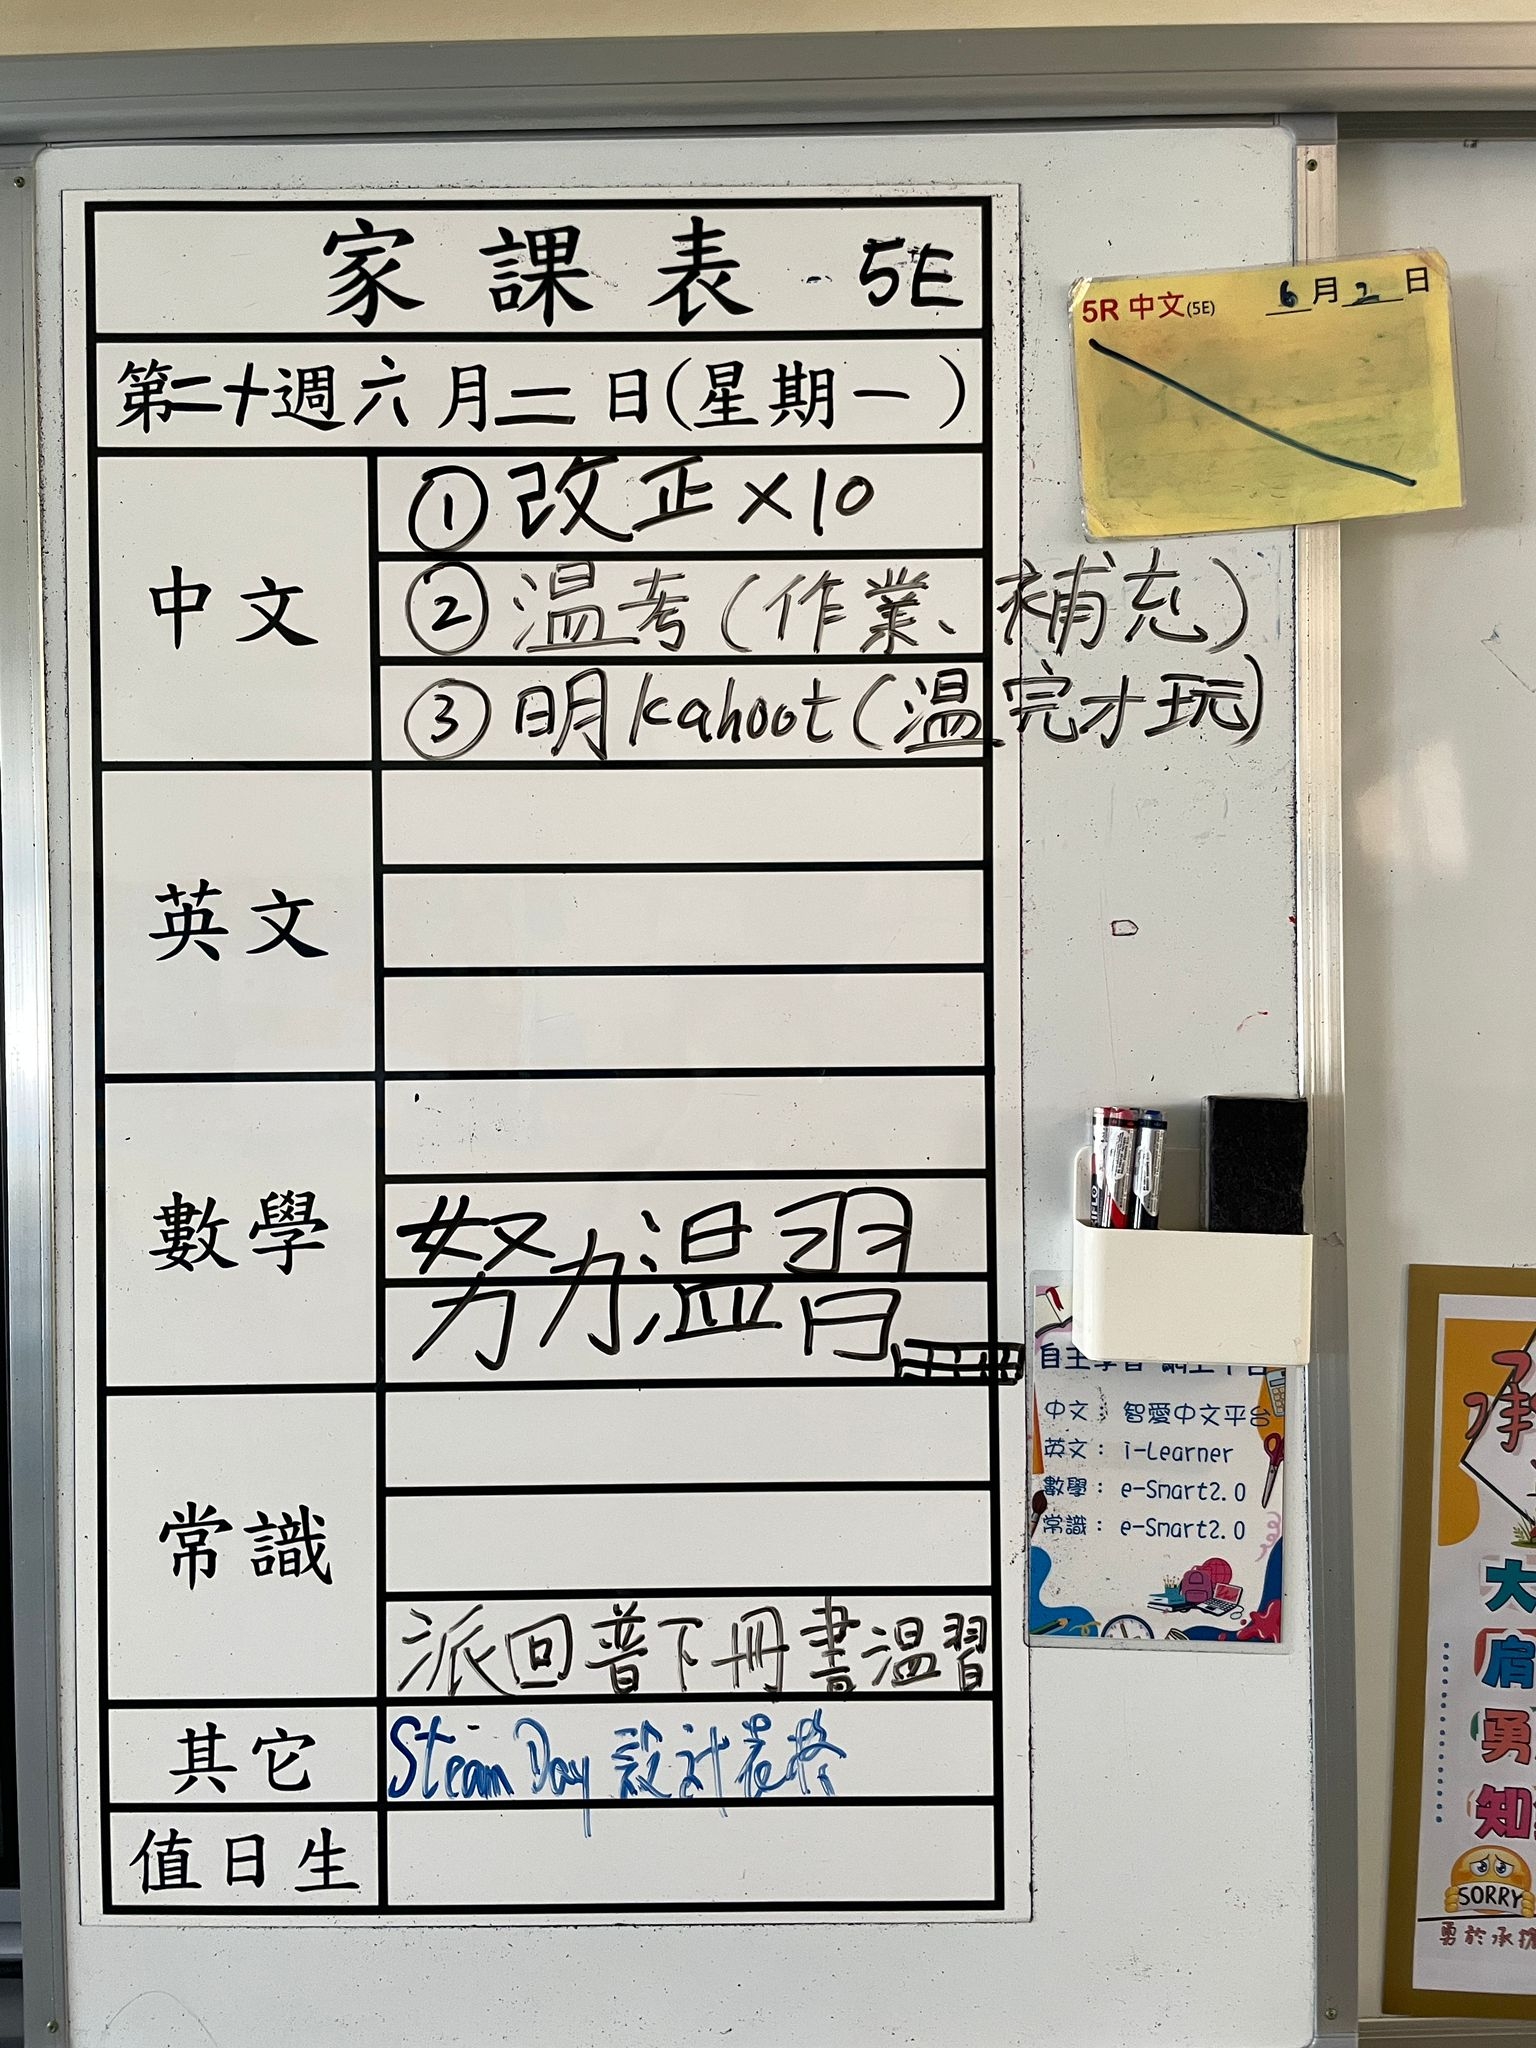 家課表 5E
第二十週六月二日(星期一)
中文
①改正×10
②温考(作業、補充)
③明kahoot(温完才玩)
英文
數學
努力温習
常識
派回普下冊書温習
其它
Steam Day 設計表格
值日生
5R 中文(5E) 6月2日
中文： 智愛中文平台
英文： i-Learner
數學： e-Smart2.0
常識： e-Smart2.0
大
肩
勇
知
SORRY
勇於承擔